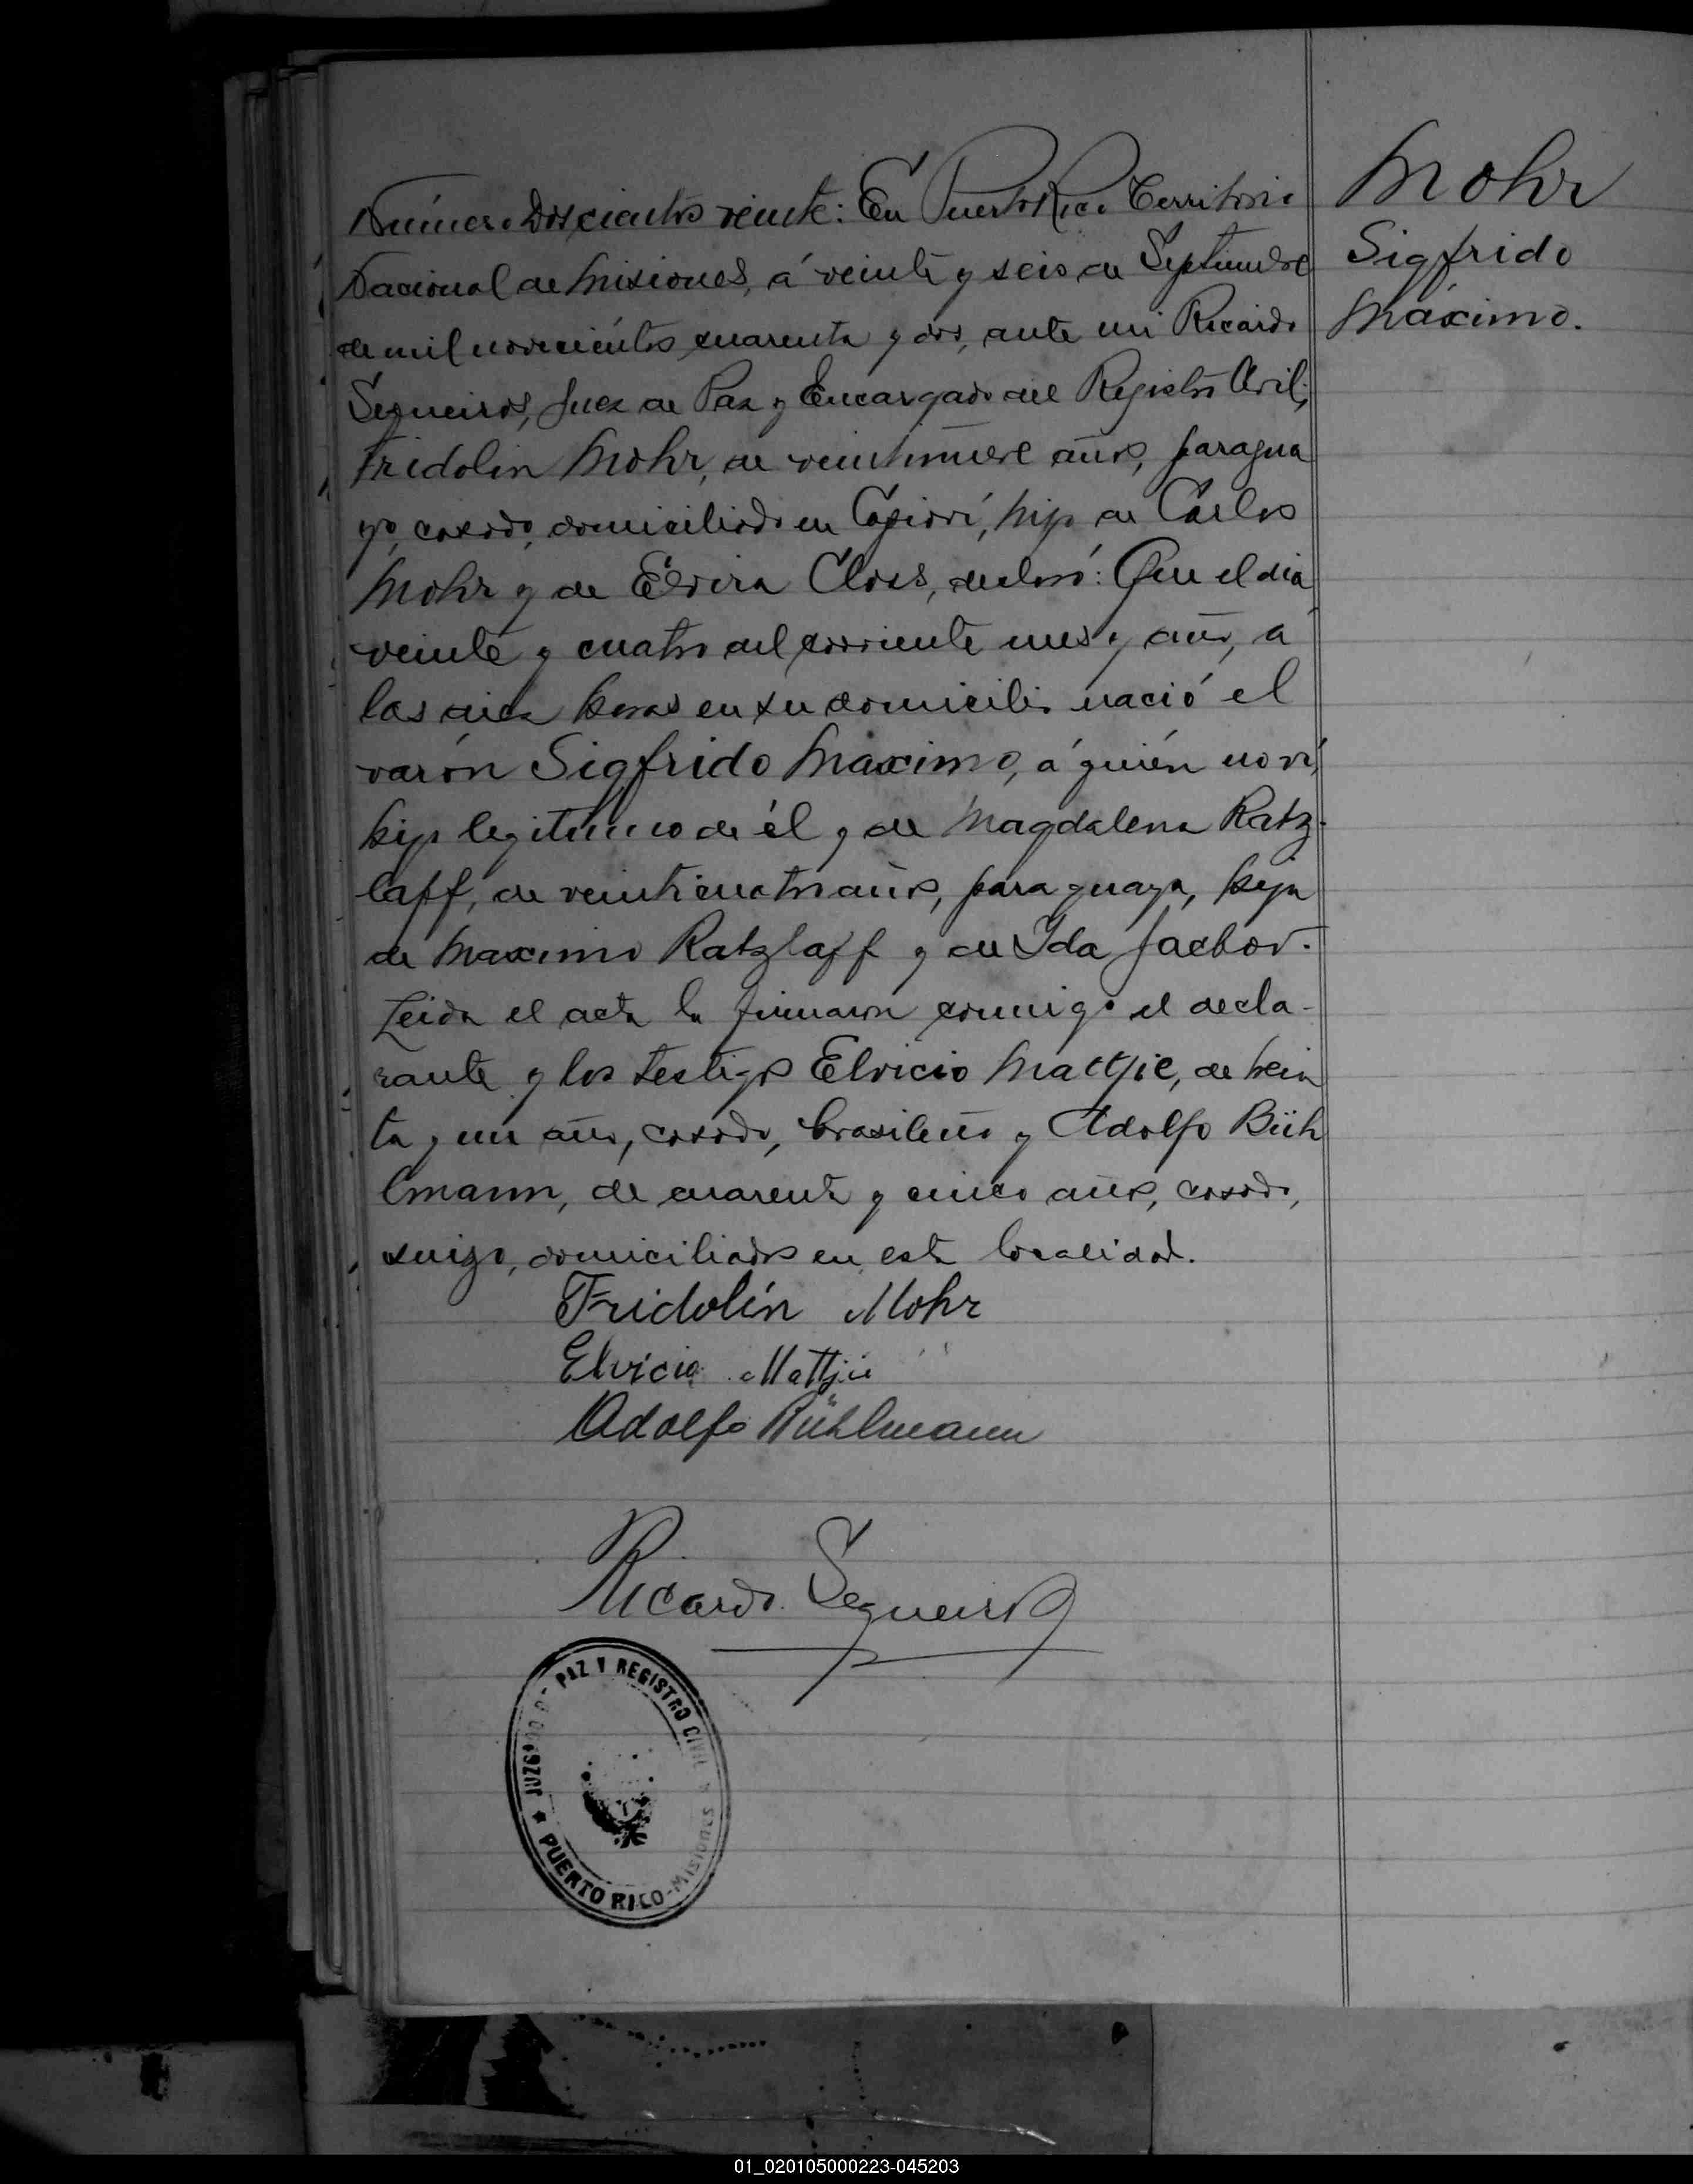 Número Doscientos veinte: En Puerto Rico Territorio
Nacional de Misiones, á veinte y seis de Septiembre
de mil novecientos cuarenta y dos, ante mi Ricardo
Sequeiros, Juez de Paz y Encargado del Registro Civil;
Fridolin Mohr, de veintinueve años, paragua
yo, casado, domiciliado en Capioví, hijo de Carlos
Mohr y de Elvira Closs, declaró: Que el dia
veinte y cuatro del corriente mes y año, a
las diez horas en su domicilio nació el
varón Sigfrido Maximo, á quién no ví,
hijo legitimo de él y de Magdalena Ratz-
laff, de veinticuatro años, paraguaya, hija
de Maximo Ratzlaff y de Ida Jachov.
Leida el acta la firmaron conmigo el decla-
rante y los testigos Elvicio Mattjie, de trein
ta y un años, casado, brasileño y Adolfo Büh
lmann, de cuarenta y cinco años, casado,
suizo, domiciliados en esta localidad.
Fridolín Mohr
Elvicio Mattjie
Adolfo Bühlmann
Ricardo Sequeiros
JUZGADO DE PAZ Y REGISTRO CIVIL
PUERTO RICO-MISIONES
Mohr
Sigfrido
Máximo.
01_020105000223-045203